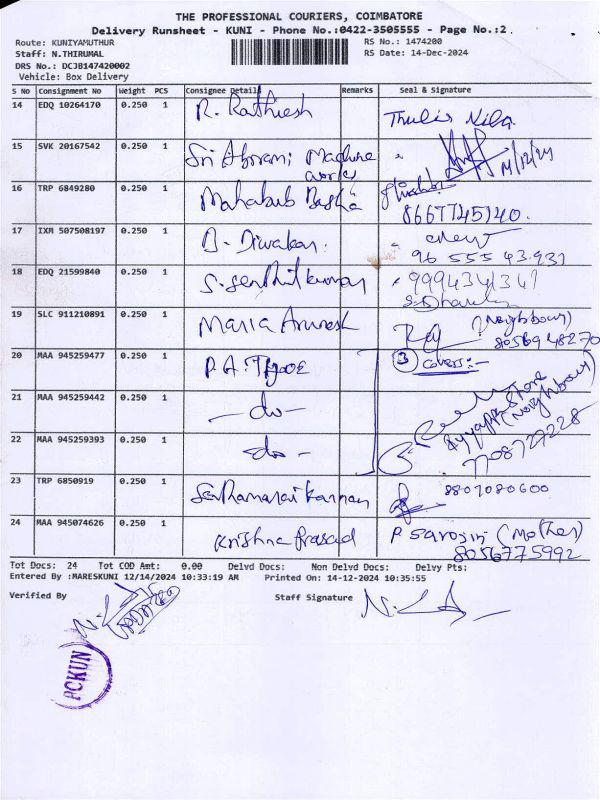 THE PROFESSIONAL COURIERS, COIMBATORE
Delivery Runsheet - KUNI - Phone No.:0422-3505555 - Page No.:2
Route: KUNIYAMUTHUR RS No.: 1474200
Staff: N.THIRUMAL RS Date: 14-Dec-2024
DRS No.: DCJB147420002
Vehicle: Box Delivery
S No Consignment No Weight PCS Consignee Detail Remarks Seal & Signature
14 EDQ 10264170 0.250 1 R. Rathiesh Thulis Nila
15 SVK 20167542 0.250 1 Sri Abirami Machine works 14/12/24
16 TRP 6849280 0.250 1 Mahabub Basha 8667745140.
17 IXM 507508197 0.250 1 D. Diwakar. 96 555 43.931
18 EDQ 21599840 0.250 1 S. Senthil kumar 9994341341
19 SLC 911210891 0.250 1 Maria Amresh (Neighbour) 8056948270
20 MAA 945259477 0.250 1 P.A. Tijoe 3 covers:-
21 MAA 945259442 0.250 1 -do- Ayyappa Store (Neighbour)
22 MAA 945259393 0.250 1 -do- 7708727228
23 TRP 6850919 0.250 1 8807080600
24 MAA 945074626 0.250 1 Krishna Prasad P Sarojini (Mother) 8056775992
Tot Docs: 24 Tot COD Amt: 0.00 Delvd Docs: Non Delvd Docs: Delvy Pts:
Entered By :MARESKUNI 12/14/2024 10:33:19 AM Printed On: 14-12-2024 10:35:55
Verified By Staff Signature
PCKUN